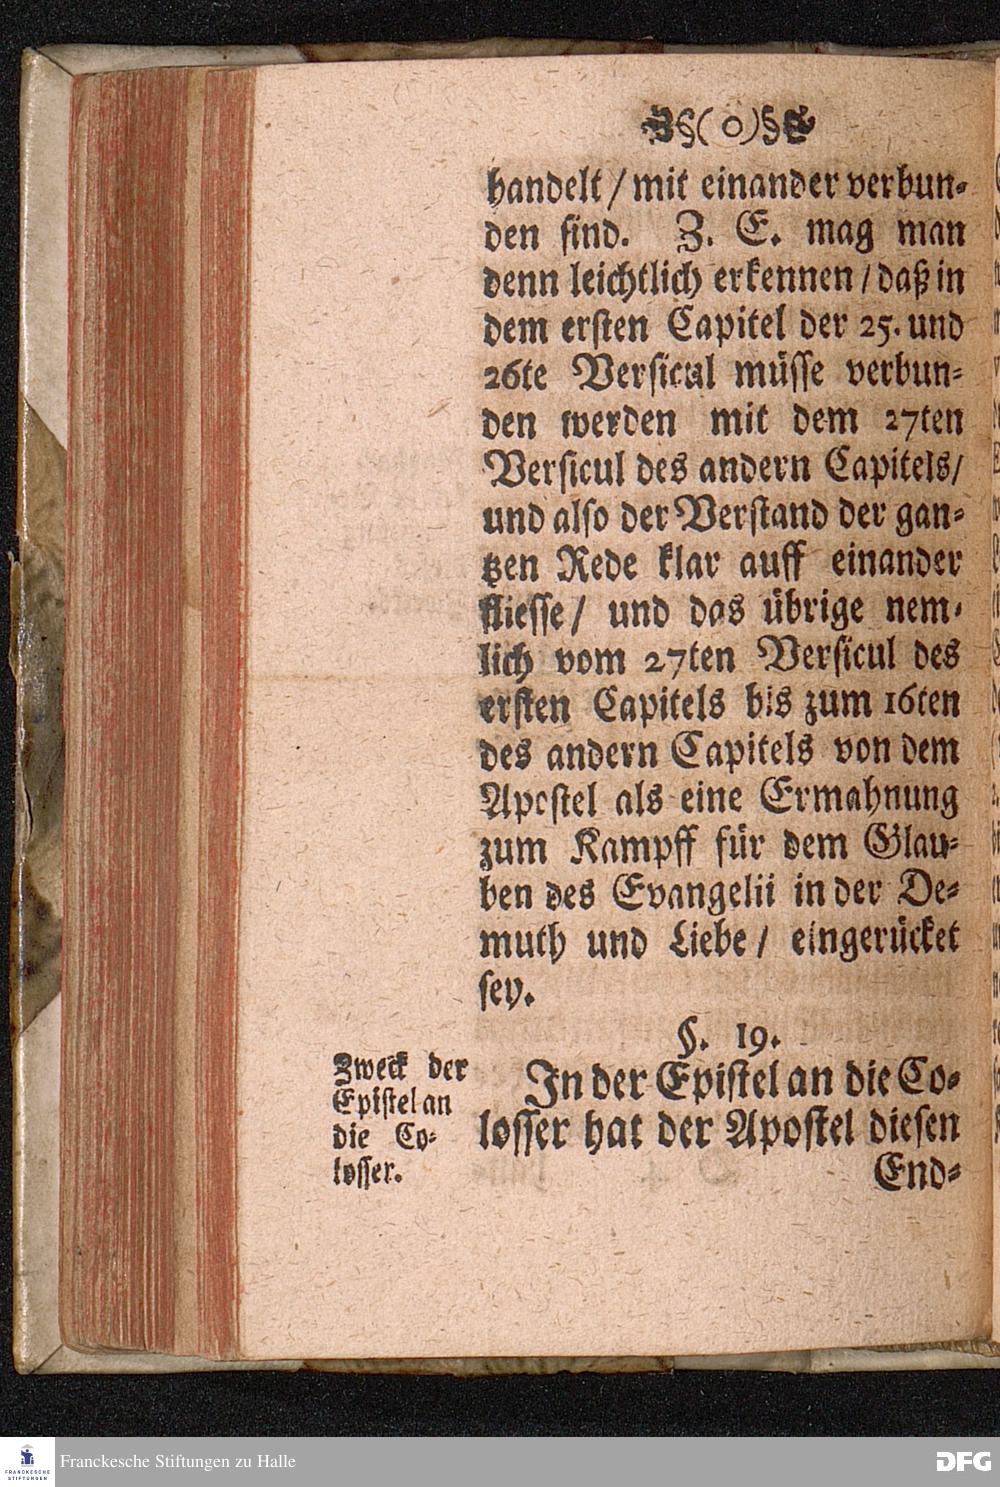 §( o )§
handelt / mit einander verbun-
den sind. Z. E. mag man
denn leichtlich erkennen / daß in
dem ersten Capitel der 25. und
26te Versicul müsse verbun-
den werden mit dem 27ten
Versicul des andern Capitels /
und also der Verstand der gan-
tzen Rede klar auff einander
fliesse / und das übrige nem-
lich vom 27ten Versicul des
ersten Capitels bis zum 16ten
des andern Capitels von dem
Apostel als eine Ermahnung
zum Kampff für dem Glau-
ben des Evangelii in der De-
muth und Liebe / eingerücket
sey.
§. 19.
Zweck der
Epistel an
die Co-
losser.
In der Epistel an die Co-
losser hat der Apostel diesen
End-
FRANCKESCHE
STIFTUNGEN
Franckesche Stiftungen zu Halle
DFG